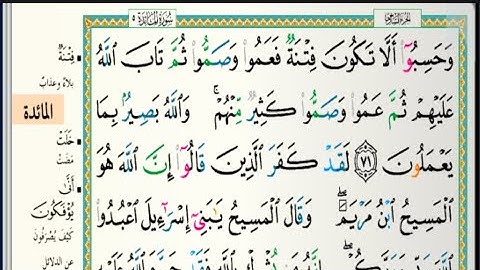 الجزء السادس
سورة المائدة ٥
وَحَسِبُوٓا۟ أَلَّا تَكُونَ فِتْنَةٌ فَعَمُوا۟ وَصَمُّوا۟ ثُمَّ تَابَ ٱللَّهُ
عَلَيْهِمْ ثُمَّ عَمُوا۟ وَصَمُّوا۟ كَثِيرٌ مِّنْهُمْ ۚ وَٱللَّهُ بَصِيرٌۢ بِمَا
يَعْمَلُونَ ٧١ لَقَدْ كَفَرَ ٱلَّذِينَ قَالُوٓا۟ إِنَّ ٱللَّهَ هُوَ
ٱلْمَسِيحُ ٱبْنُ مَرْيَمَ ۖ وَقَالَ ٱلْمَسِيحُ يَٰبَنِىٓ إِسْرَٰٓءِيلَ ٱعْبُدُوا۟
فِتْنَةٌ
بلاءٌ وعذابٌ
المائدة
خَلَتْ
مَضَتْ
أَنَّىٰ
يُؤْفَكُونَ
كَيْفَ يُصْرَفُونَ
عن الدلائل